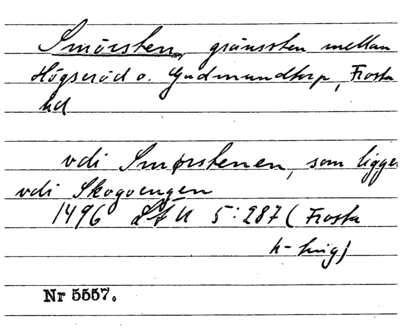 Smörsten, gränssten mellan
Högseröd o. Gudmundtorp, Frosta
hd
vdi Smørstenen, som ligge
vdi Skogoengen
1496 LÄU 5:287 (Frosta
h-ting)
Nr 5557.